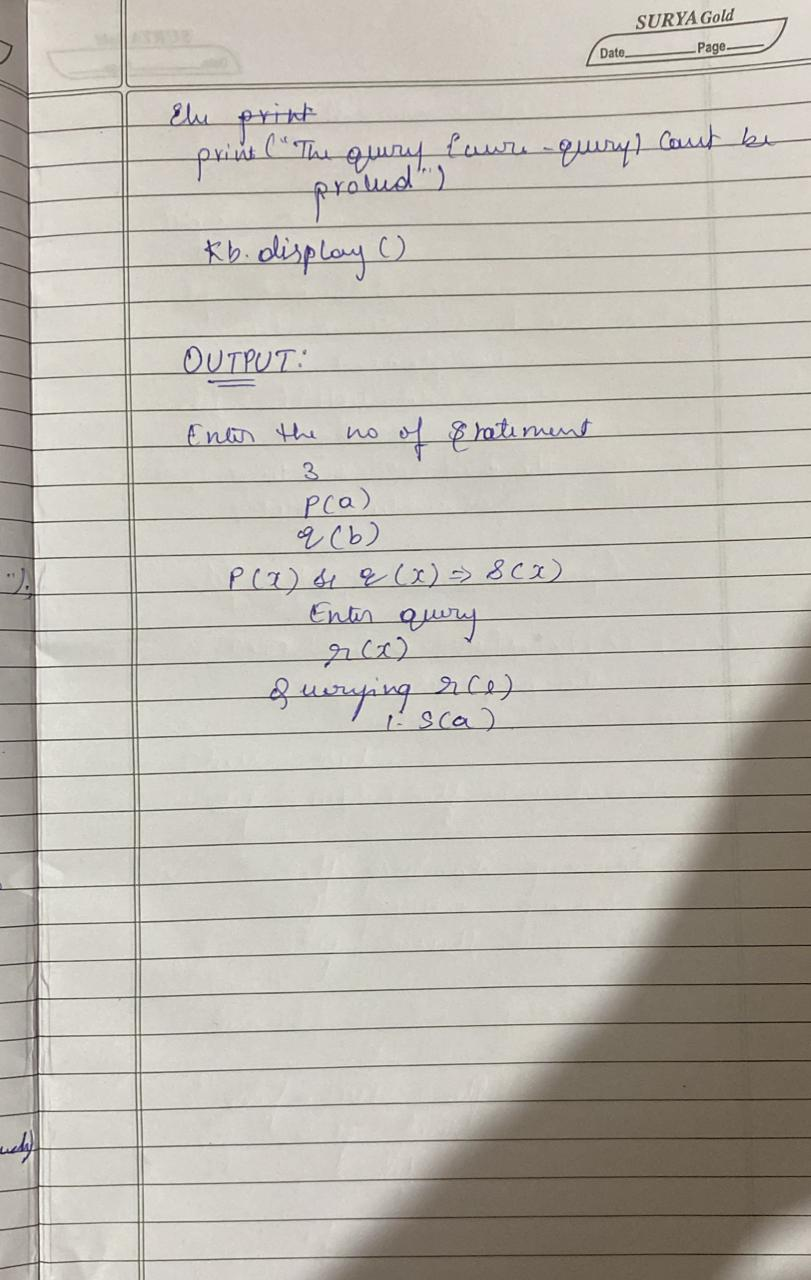 SURYA Gold
Date Page
Else print
print("The query {user-query} Can't be
proved")
Kb.display()
OUTPUT:
Enter the no of Statement
3
P(a)
q(b)
P(x) & q(x) => S(x)
Enter query
r(x)
Querying r(x)
1. S(a)